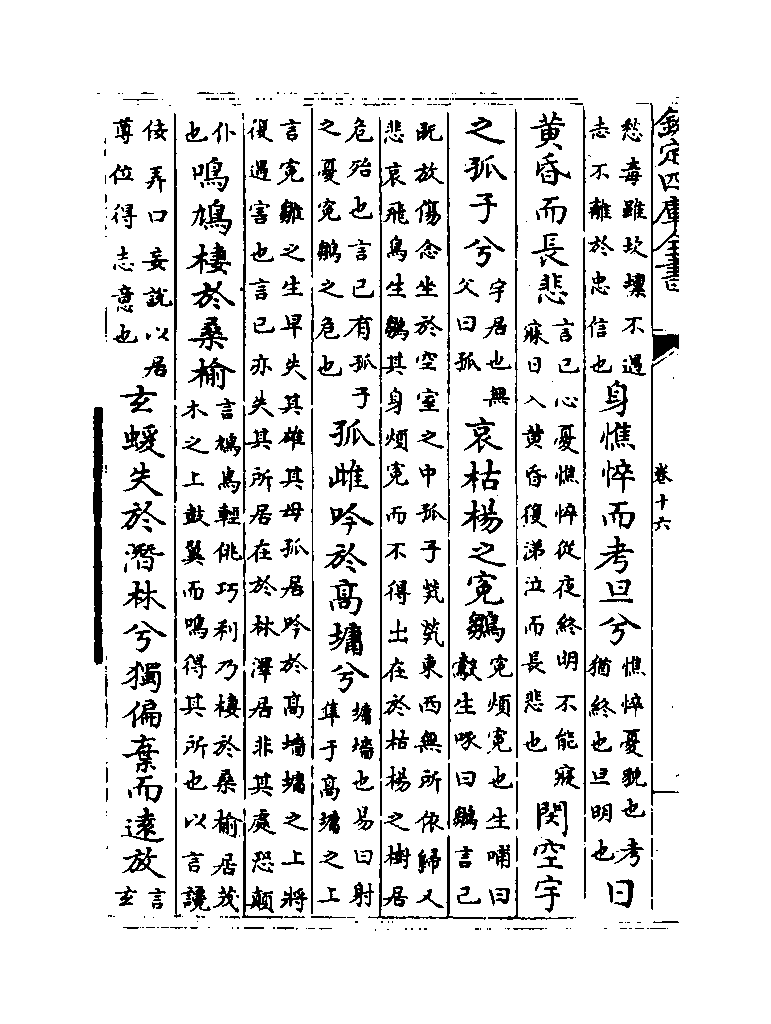 欽定四庫全書
卷十六
愁毒雖坎壈不遇
志不離於忠信也
身憔悴而考旦兮
憔悴憂貌也考
猶終也旦明也
日
黄昏而長悲
言已心憂憔悴從夜終明不能寐
寐日入黄昏復涕泣而長悲也
閔空宇
之孤子兮
宇居也無
父曰孤
哀枯楊之寃鶵
寃煩寃也生哺曰
鷇生啄曰鶵言已
既放傷念坐於空室之中孤子煢煢東西無所依歸又
悲哀飛鳥生鶵其身煩寃而不得出在於枯楊之樹居
危殆也言已有孤子
之憂寃鶵之危也
孤雌吟於高墉兮
墉墻也易曰射
隼于高墉之上
言寃雛之生早失其雄其母孤居吟於高墻墉之上將
復遇害也言已亦失其所居在於林澤居非其處恐顛
仆
也
鳴鳩棲於桑榆
言鳩鳥輕佻巧利乃棲於桑榆居茂
木之上鼓翼而鳴得其所也以言讒
佞弄口妄說以居
尊位得志意也
玄蝯失於潛林兮獨偏棄而遠放
言
玄